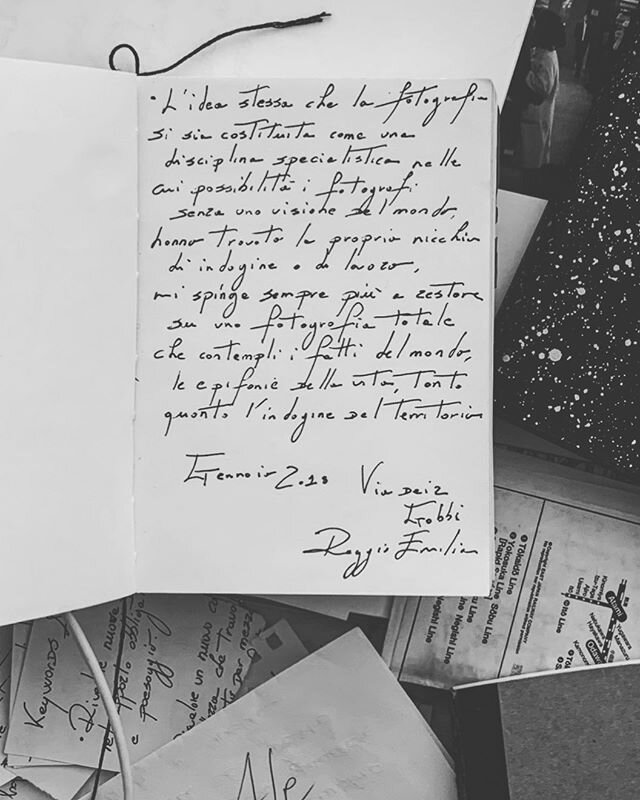 • L'idea stessa che la fotografia
si sia costituita come una
disciplina specialistica nelle
cui possibilità i fotografi
senza una visione del mondo,
hanno trovato la propria nicchia
di indagine o di lavoro,
mi spinge sempre più a restare
su una fotografia totale
che contempli i fatti del mondo,
le epifanie della vita, tanto
quanto l'indagine del territorio
Gennaio 2018 Via dei 2
Gobbi
Reggio Emilia
Keywords
• Rivalve nuove
spazio obbligat
e passaggio.
un nuovo
che travol
per mezzo
Ale
Tōkaidō Line
Yokosuka Line
Sōbu Line
Negishi Line
Negishi Line
Itō Line